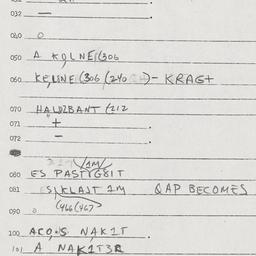 032 —
040 0
050 A KOLNE(306
060 KELINE (306 (240 )- KRAG+
070 HALDZBANT (212
071 +
072 -
(1M)
080 ES PASTYG8IT
081 SIKLAJT 1M QAP BECOMES
(466(467>
090 0
100 NAK1T
101 A NAK1T3R